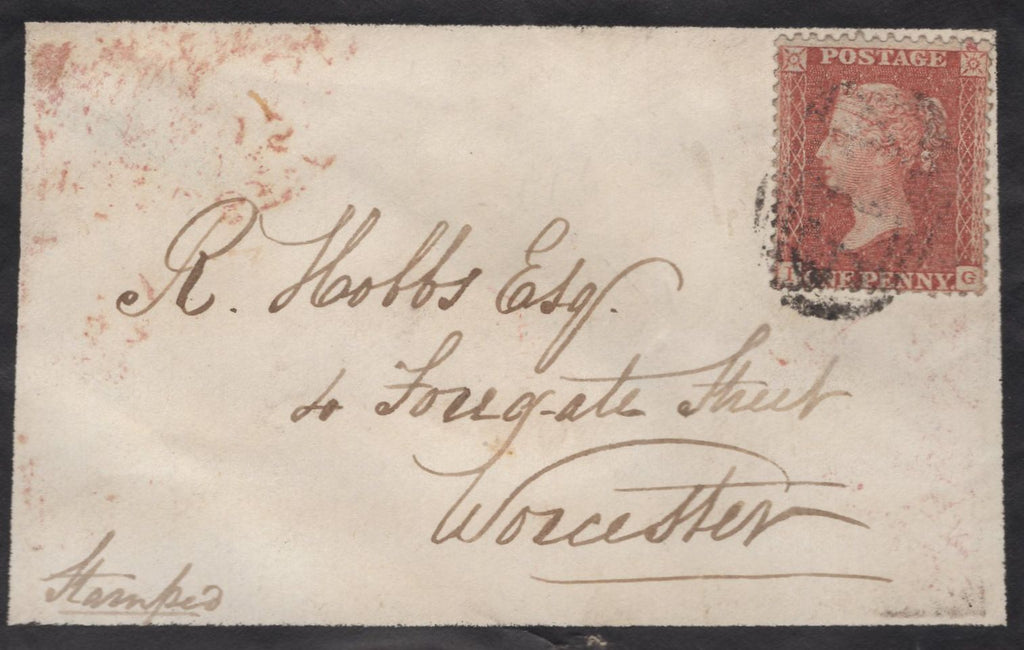 POSTAGE
ONE PENNY G
R. Hobbs Esq.
4 Foregate Street
Worcester
Stamped